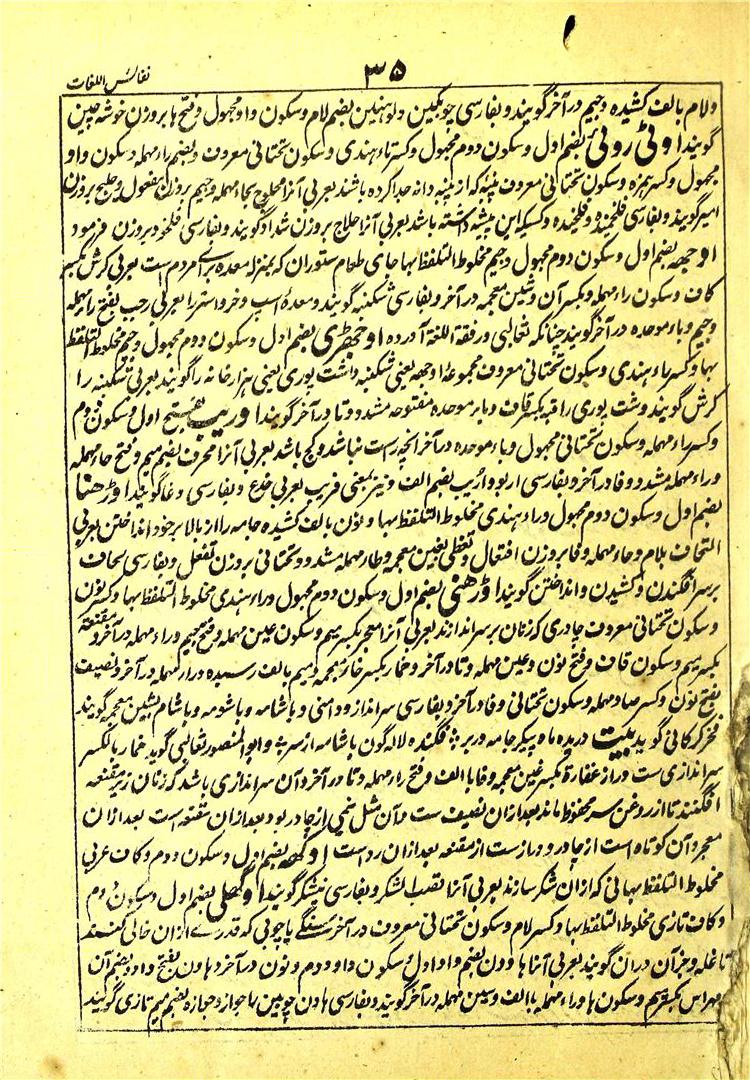 نفائس اللغات
۳۵
ولام بالف کشیده وجیم در آخر گویند و بفارسی چوبکین و لوهنین بضم لام وسکون واو مجهول وفتح ها بروزن خوشه چین
گویند اوٹی روئی بضم اول وسکون دوم مجهول وکسر تاء هندی وسکون تحتانی معروف وبضم راء مهمله وسکون واو
مجهول وکسر همزه وسکون تحتانی معروف پنبه که از پنبه دانه جدا کرده باشند بعربی آنرا محلوج بحاء مهمله وجیم بروزن مفعول وحلیج بروزن
امیر گویند و بفارسی فلخیده وفلخمیده وکسیکه این پیشه داشته باشد بعربی آنرا حلاج بروزن شداد گویند و بفارسی فلخود بروزن فرمود
اوجهه بضم اول وسکون دوم مجهول وجیم مخلوط التلفظ بها جای طعام ستوران که بمنزله معده برای مردم ست بعربی کرش بکسر
کاف وسکون راء مهمله وبکسر آن وشین معجمه در آخر و بفارسی شکنبه گویند ومعدهٔ اسپ وخر واستر را بعربی رجب بفتح راء مهمله
وجیم وباء موحده در آخر گویند چنانکه ثعالبی در فقه اللغة آورده اوجهڑی بضم اول وسکون دوم مجهول وجیم مخلوط التلفظ
بها وکسر راء هندی وسکون تحتانی معروف مجموعهٔ اوجهه یعنی شکنبه وشت پوری یعنی هزار خانه را گویند بعربی شکنبه را
کرش گویند وشت پوری را قبه بکسر قاف وباء موحده مفتوحه مشدد وتا در آخر گویند اوریب بفتح اول وسکون دوم
وکسر راء مهمله وسکون تحتانی مجهول وباء موحده در آخر انچه راست نباشد وکج باشد بعربی آنرا محرف بضم میم وفتح حاء مهمله
وراء مهمله مشدد وفا در آخر و بفارسی اریو واُریب بضم الف ونیز بمعنی فریب بعربی خدع و بفارسی دغا گویند اوڑهنا
بضم اول وسکون دوم مجهول وراء هندی مخلوط التلفظ بها ونون بالف کشیده جامه را از بالا بر خود انداختن بعربی
التحاف بلام وحاء مهمله وفا بروزن افتعال وتغطی بغین معجمه وطاء مهمله مشدد وتحتانی بروزن تفعل و بفارسی لحاف
بر سر افگندن وکشیدن وانداختن گویند اوڑهنی بضم اول وسکون دوم مجهول وراء هندی مخلوط التلفظ بها وکسر نون
وسکون تحتانی معروف چادری که زنان بر سر اندازند بعربی آنرا معجر بکسر میم وسکون عین مهمله وفتح جیم وراء مهمله در آخر ومقنعه
بکسر میم وسکون قاف وفتح نون وعین مهمله وتا در آخر وخمار بکسر خاء معجمه ومیم بالف رسیده وراء مهمله در آخر ونصیف
بفتح نون وکسر صاد مهمله وسکون تحتانی وفا در آخر و بفارسی سرانداز ودامنی وباشامه وباشومه وباشام بشین معجمه گویند
فخر گرگانی گوید بیت دریده ماه پیکر جامه در بر * فگنده لاله گون باشامه از سر * وابو المنصور ثعالبی گوید خمار بالکسر
سراندازی ست دراز غفارة بکسر غین معجمه وفا با الف وفتح راء مهمله وتا در آخر وآن سراندازی باشد که زنان زیر مقنعه
افگنند تا از روغن سر محفوظ ماند بعد ازان نصیف ست وآن مثل نیمی از چادر بود وبعد ازان مقنعه است بعد ازان
معجر وآن کوتاه است از چادر و دراز ست از مقنعه بعد ازان رداست اوکهه بضم اول وسکون دوم وکاف عربی
مخلوط التلفظ بها نی که ازان شکر سازند بعربی آنرا قصب السکر و بفارسی نیشکر گویند اوکهلی بضم اول وسکون دوم
وکاف تازی مخلوط التلفظ بها وکسر لام وسکون تحتانی معروف در آخر سنگے یا چوبی که قدرے ازان خالی کنند
تا غله وجز آن دران گویند بعربی آنرا هاوون بضم واو اول وسکون واو دوم ونون در آخر وهاون بفتح واو وبضم آن
ومهراس بکسر میم وسکون ها وراء مهمله بالف وسین مهمله در آخر گویند و بفارسی هاون چوبین را جواز وجوازه بضم جیم تازی گویند